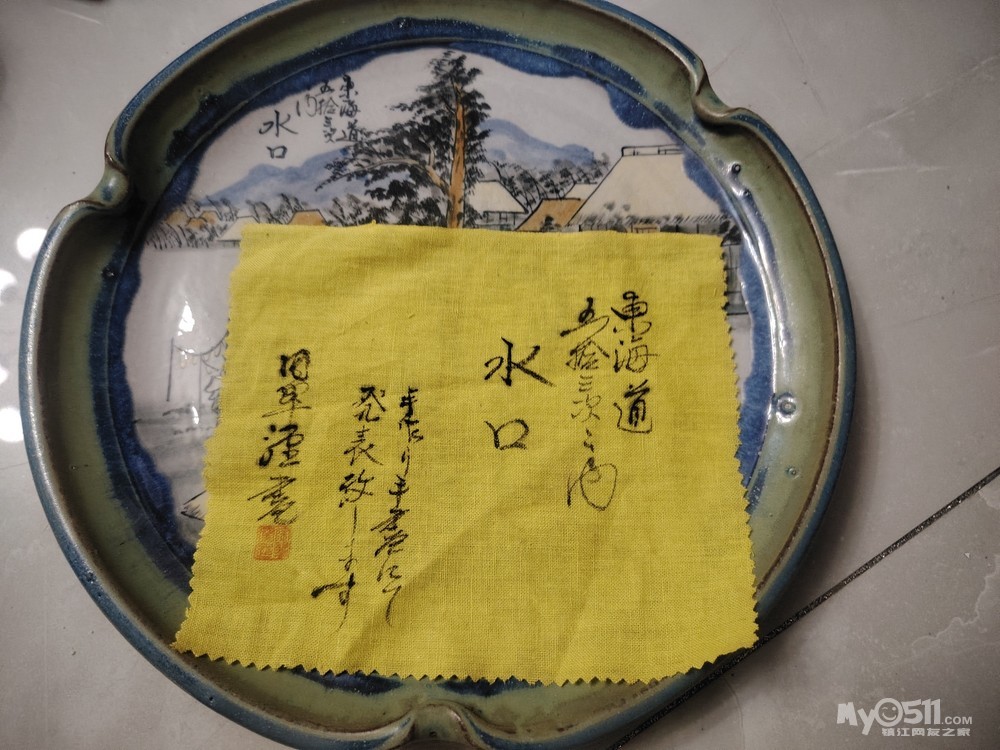 東海道
五拾三次
内
水口
東海道
五拾三次之内
水口
手作り手窯にて
発表致します
My0511.com
镇江网友之家